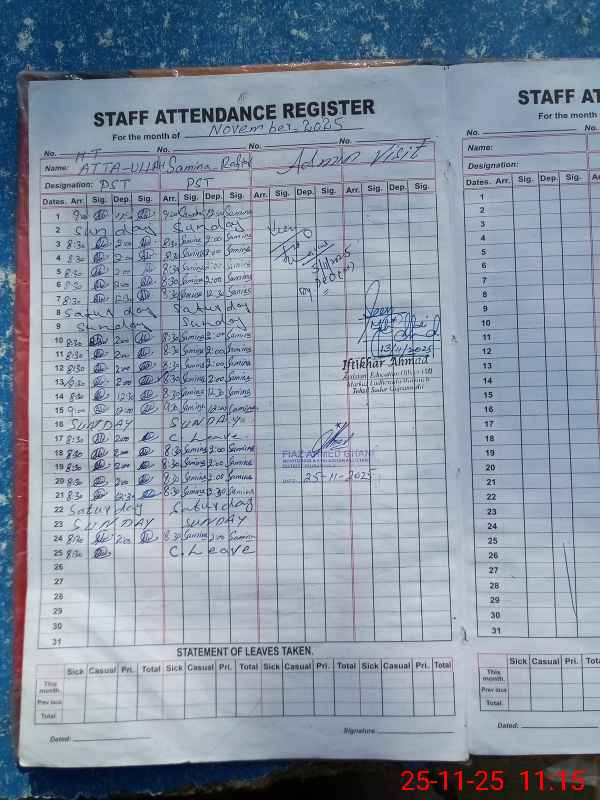 STAFF ATTENDANCE REGISTER
For the month of November-2025
No. HT No. No. No.
Name: ATTA-ULLAH Samina Rafiq Admin Visit
Designation: PST PST
Dates. Arr. Sig. Dep. Sig. Arr. Sig. Dep. Sig. Arr. Sig. Dep. Sig. Arr. Sig. Dep. Sig.
1 9:00 12:00 9:00 Samina 12:00 Samina
2 Sunday Sunday
3 8:30 2:00 8:30 Samina 2:00 Samina
4 8:30 2:00 8:30 Samina 2:00 Samina
5 8:30 2:00 8:30 Samina 2:00 Samina
6 8:30 2:00 8:30 Samina 2:00 Samina
7 8:30 12:30 8:30 Samina 12:30 Samina
8 Saturday Saturday
9 Sunday Sunday
10 8:30 2:00 8:30 Samina 2:00 Samina
11 8:30 2:00 8:30 Samina 2:00 Samina
12 8:30 2:00 8:30 Samina 2:00 Samina
13 8:30 2:00 8:30 Samina 2:00 Samina
14 8:30 12:30 8:30 Samina 12:30 Samina
15 9:00 12:00 9:00 Samina 12:00 Samina
16 SUNDAY SUNDAY
17 8:30 2:00 C. Leave
18 8:30 2:00 8:30 Samina 2:00 Samina
19 8:30 2:00 8:30 Samina 2:00 Samina
20 8:30 2:00 8:30 Samina 2:00 Samina
21 8:30 12:30 8:30 Samina 12:30 Samina
22 Saturday Saturday
23 SUNDAY SUNDAY
24 8:30 2:00 8:30 Samina 2:00 Samina
25 8:30 C. Leave
26
27
28
29
30
31
13/11/2025
Iftikhar Ahmad
Assistant Education Officer (M)
Markaz Ladhewala Warraich
Tehsil Sadar Gujranwala
FIAZ AHMED GHANI
25-11-2025
STATEMENT OF LEAVES TAKEN.
Sick Casual Pri. Total Sick Casual Pri. Total Sick Casual Pri. Total Sick Casual Pri. Total
This month.
Prev ious
Total
Dated: Signature
STAFF AT
For the mo
No. No.
Name:
Designation:
Dates. Arr. Sig. Dep. Sig. Arr. Sig.
1
2
3
4
5
6
7
8
9
10
11
12
13
14
15
16
17
18
19
20
21
22
23
24
25
26
27
28
29
30
31
Sick Casual Pri. Total Sick
This month.
Prev ious
Total
Dated:
25-11-25 11.15